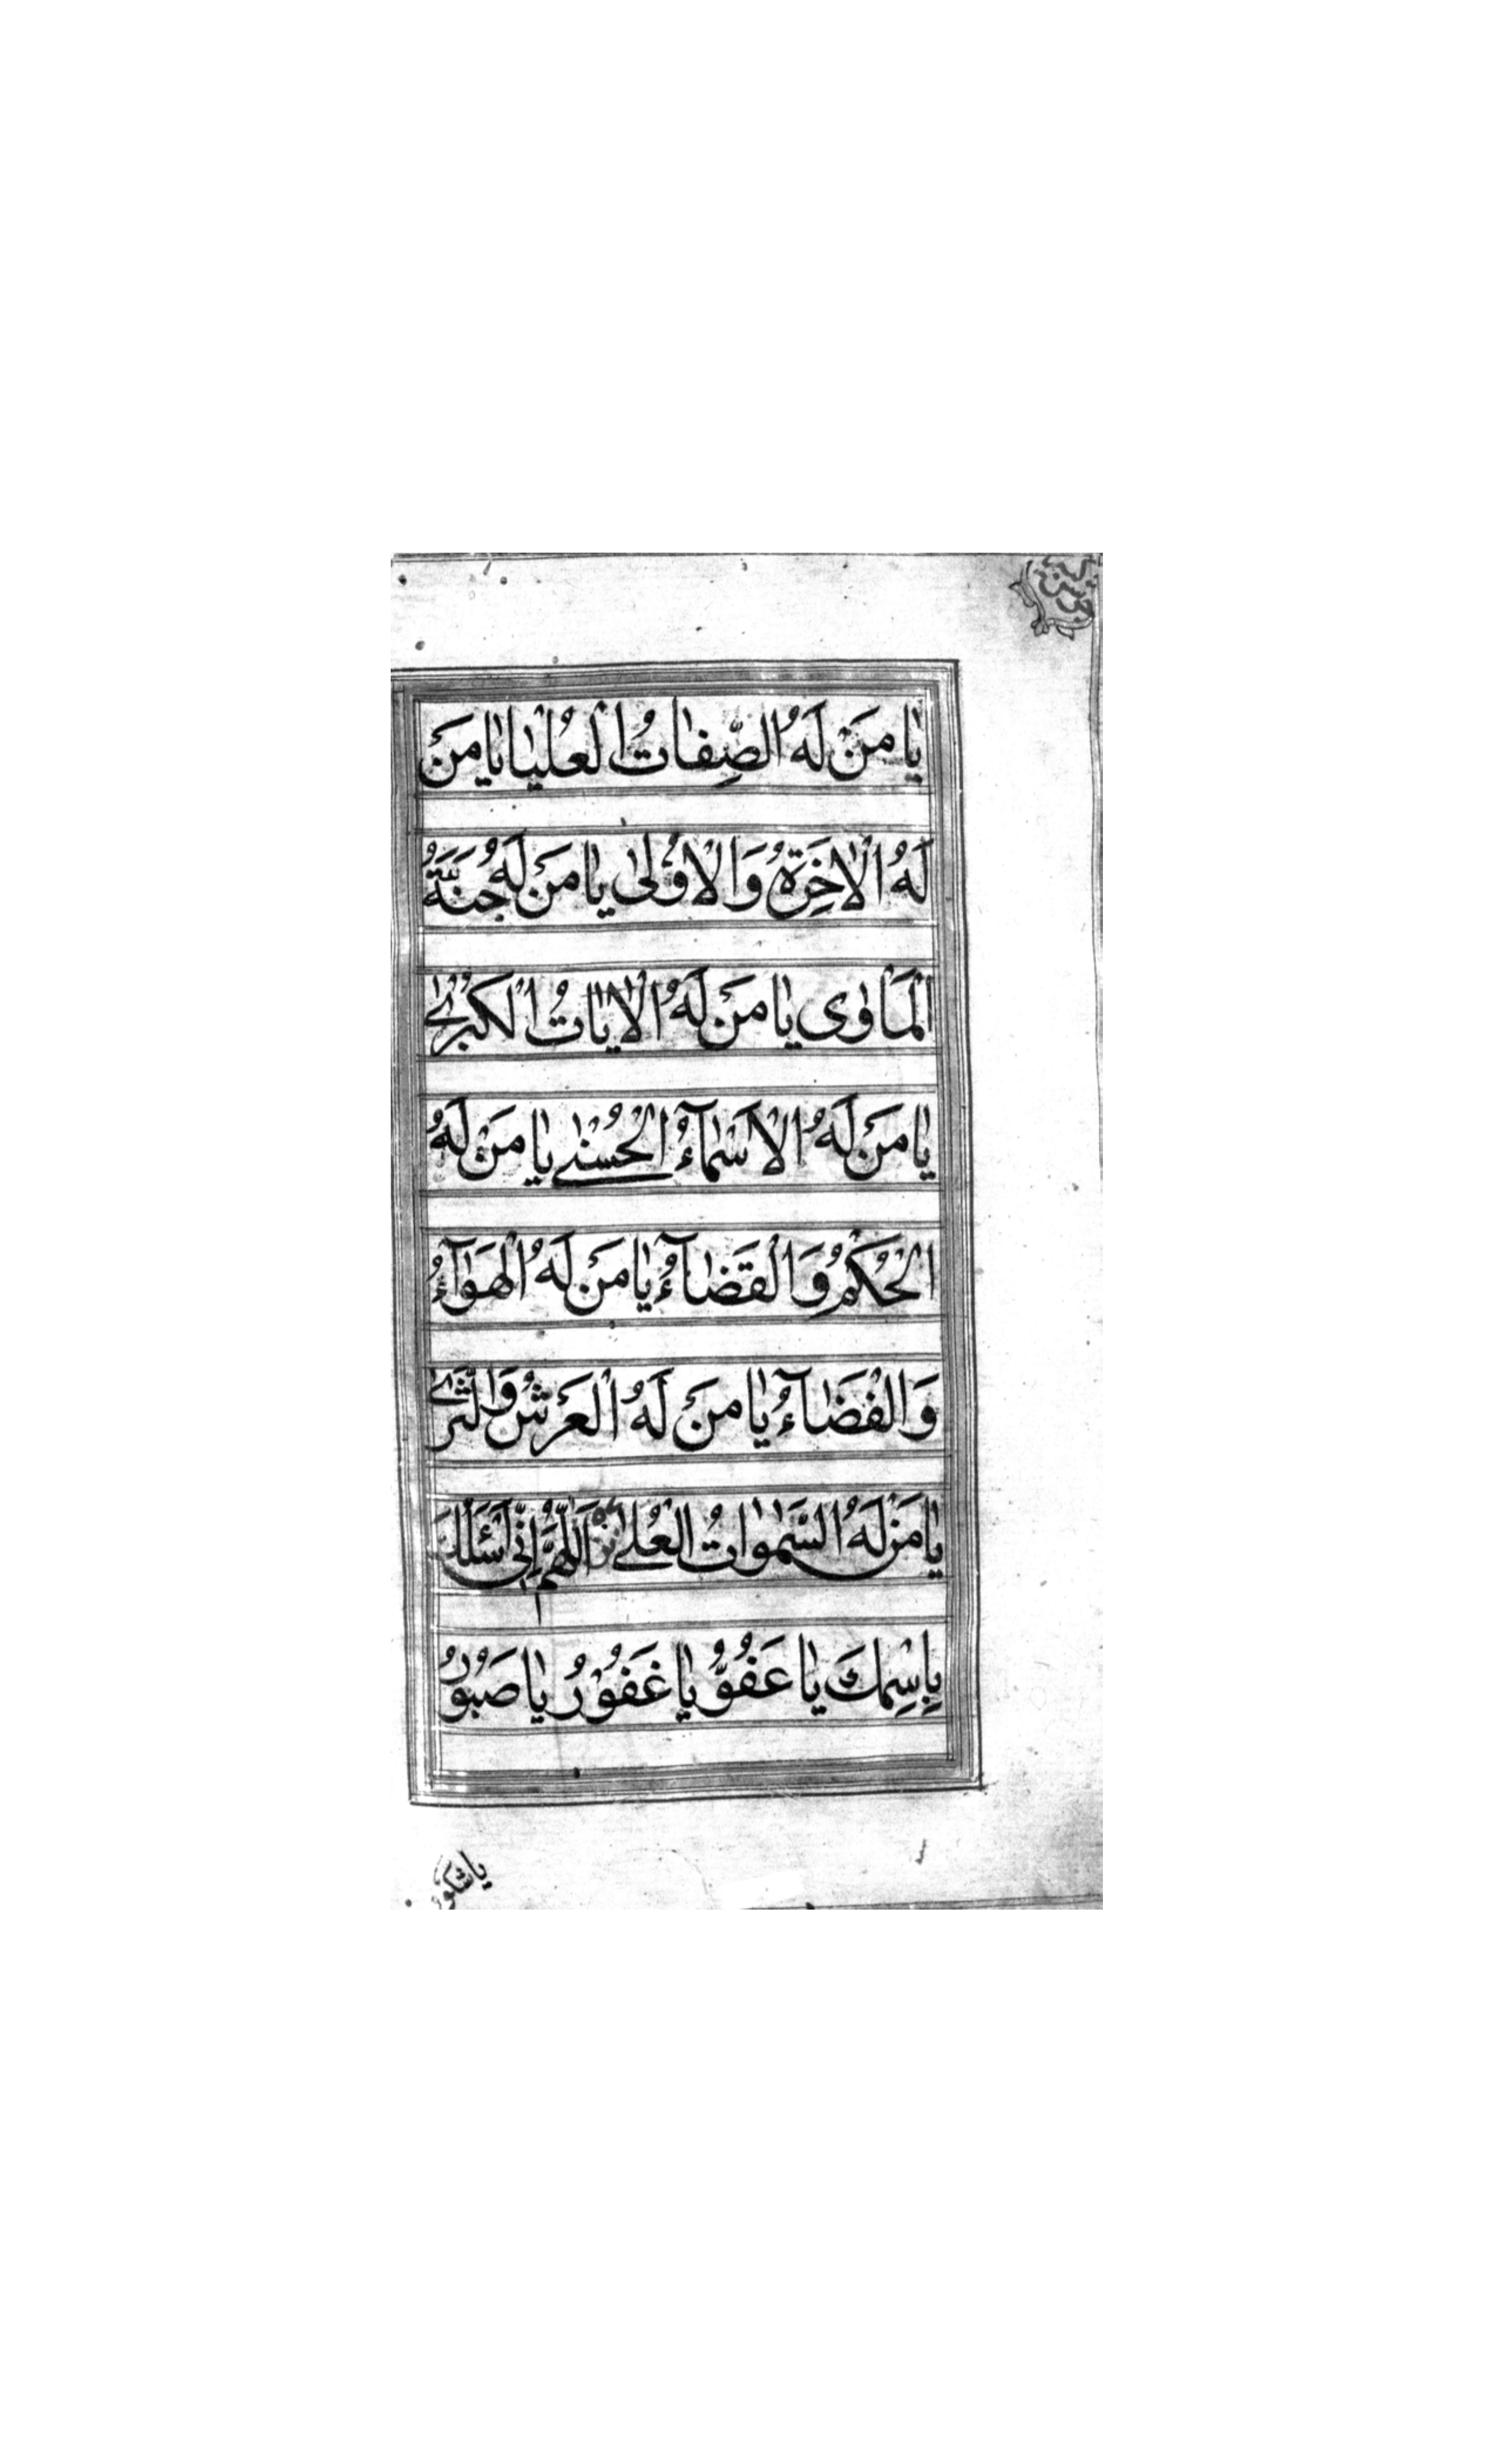 يٰا مَنْ لَهُ الصِّفٰاتُ الْعُلْيٰا يٰا مَنْ
لَهُ الْاٰخِرَةُ وَالْاُوْلىٰ يٰا مَنْ لَهُ جَنَّةُ
الْمَأوٰى يٰا مَنْ لَهُ الْاٰيٰاتُ الْكُبْرىٰ
يٰا مَنْ لَهُ الْاَسْمٰآءُ الْحُسْنىٰ يٰا مَنْ لَهُ
الْحُكْمُ وَالْقَضٰآءُ يٰا مَنْ لَهُ الْهَوٰآءُ
وَالْفَضٰآءُ يٰا مَنْ لَهُ الْعَرْشُ وَالثَّرىٰ
يٰا مَنْ لَهُ السَّمٰوٰاتُ الْعُلىٰ اَللّٰهُمَّ اِنّىٖ اَسْئَلُكَ
بِاسْمِكَ يٰا عَفُوُّ يٰا غَفُوْرُ يٰا صَبُوْرُ
يا شكور